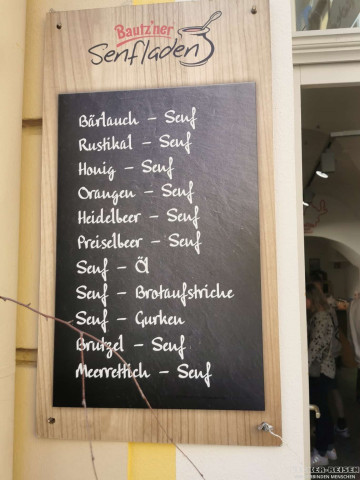 Bautz'ner
Senfladen
Bärlauch – Senf
Rustikal – Senf
Honig – Senf
Orangen – Senf
Heidelbeer – Senf
Preiselbeer – Senf
Senf – Öl
Senf – Brotaufstriche
Senf – Gurken
Brutzel – Senf
Meerrettich – Senf